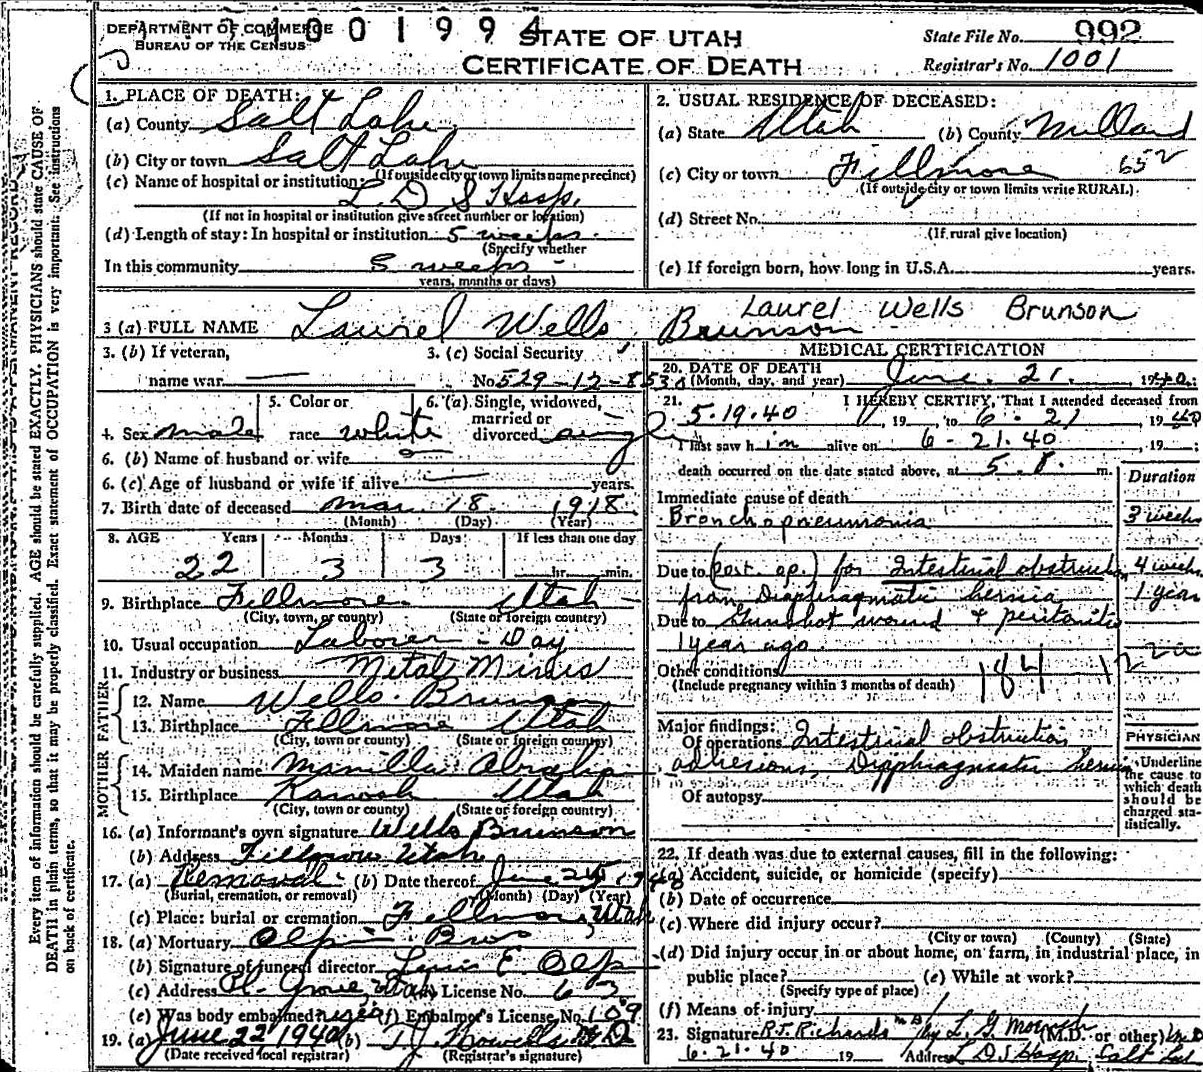 2 1 0 0 1 9 9 4
DEPARTMENT OF COMMERCE
BUREAU OF THE CENSUS
STATE OF UTAH
CERTIFICATE OF DEATH
State File No. 992
Registrar's No. 1001
Every item of information should be carefully supplied. AGE should be stated EXACTLY. PHYSICIANS should state CAUSE OF
DEATH in plain terms, so that it may be properly classified. Exact statement of OCCUPATION is very important. See instructions
on back of certificate.
1. PLACE OF DEATH:
(a) County Salt Lake
(b) City or town Salt Lake
(If outside city or town limits name precinct)
(c) Name of hospital or institution:
L. D. S Hosp.
(If not in hospital or institution give street number or location)
(d) Length of stay: In hospital or institution 5 weeks
(Specify whether
In this community 5 weeks
years, months or days)
2. USUAL RESIDENCE OF DECEASED:
(a) State Utah (b) County Millard
(c) City or town Fillmore 652
(If outside city or town limits write RURAL)
(d) Street No.
(If rural give location)
(e) If foreign born, how long in U.S.A. years.
Laurel Wells Brunson
3 (a) FULL NAME Laurel Wells Brunson
3. (b) If veteran,
name war
3. (c) Social Security
No. 529-12-8538
4. Sex male
5. Color or
race white
6. (a) Single, widowed,
married or
divorced single
6. (b) Name of husband or wife
6. (c) Age of husband or wife if alive years.
7. Birth date of deceased Mar 18 1918
(Month) (Day) (Year)
8. AGE Years Months Days If less than one day
22 3 3 hr. min.
9. Birthplace Fillmore Utah
(City, town, or county) (State or foreign country)
10. Usual occupation Laborer - Day
11. Industry or business Metal Mines
FATHER
12. Name Wells Brunson
13. Birthplace Fillmore Utah
(City, town or county) (State or foreign country)
MOTHER
14. Maiden name Manilla
15. Birthplace Kanosh Utah
(City, town or county) (State or foreign country)
16. (a) Informant's own signature Wells Brunson
(b) Address Fillmore Utah
17. (a) Removal (b) Date thereof June 1940
(Burial, cremation, or removal) (Month) (Day) (Year)
(c) Place: burial or cremation Fillmore, Utah
18. (a) Mortuary Olpin Bros
(b) Signature of funeral director
(c) Address Pl. Grove, Utah License No. 63
(e) Was body embalmed? (f) Embalmer's License No. 109
19. (a) June 22 1940 (b)
(Date received local registrar) (Registrar's signature)
MEDICAL CERTIFICATION
20. DATE OF DEATH
(Month, day, and year) June. 21. 1940
21. I HEREBY CERTIFY, That I attended deceased from
5.19.40, 19 to 6.21 1940
I last saw him alive on 6-21.40, 19
death occurred on the date stated above, at m.
Duration
Immediate cause of death
Bronchopneumonia 3 weeks
Due to (post. op.) for Intestinal obstruction 4 weeks
from Diaphragmatic hernia 1 year
Due to Gunshot wound & peritonitis
1 year ago.
Other conditions 184
(Include pregnancy within 3 months of death)
Major findings:
Of operations Intestinal obstruction
adhesions, Diaphragmatic hernia
Of autopsy
PHYSICIAN
Underline
the cause to
which death
should be
charged sta-
tistically.
22. If death was due to external causes, fill in the following:
(a) Accident, suicide, or homicide (specify)
(b) Date of occurrence
(c) Where did injury occur?
(City or town) (County) (State)
(d) Did injury occur in or about home, on farm, in industrial place, in
public place? (e) While at work?
(Specify type of place)
(f) Means of injury
23. Signature (M.D. or other)
6.21.40 19 Address L D S Hosp,